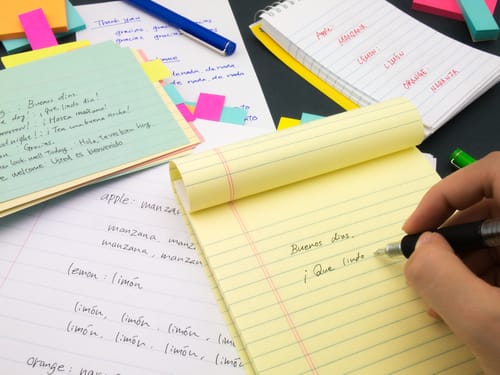 Thank you
gracias, gracias
gracias, gracias
de nada de nada
de nada de nada
Buenos días.
day! : ¡Que lindo día!
tomorrow! : ¡Hasta mañana!
night! : ¡Ten una buena noche!
Gracias.
look well today. : Hola, te ves bien hoy.
welcome. Usted es bienvenido.
Apple MANZANA
LEMON LIMÓN
ORANGE NARANJA
apple : manzana
manzana, manzana
manzana, manzana
lemon : limón
limón, limón, limón, limón
limón, limón, limón, limón
orange :
Buenos días.
¡Que lindo